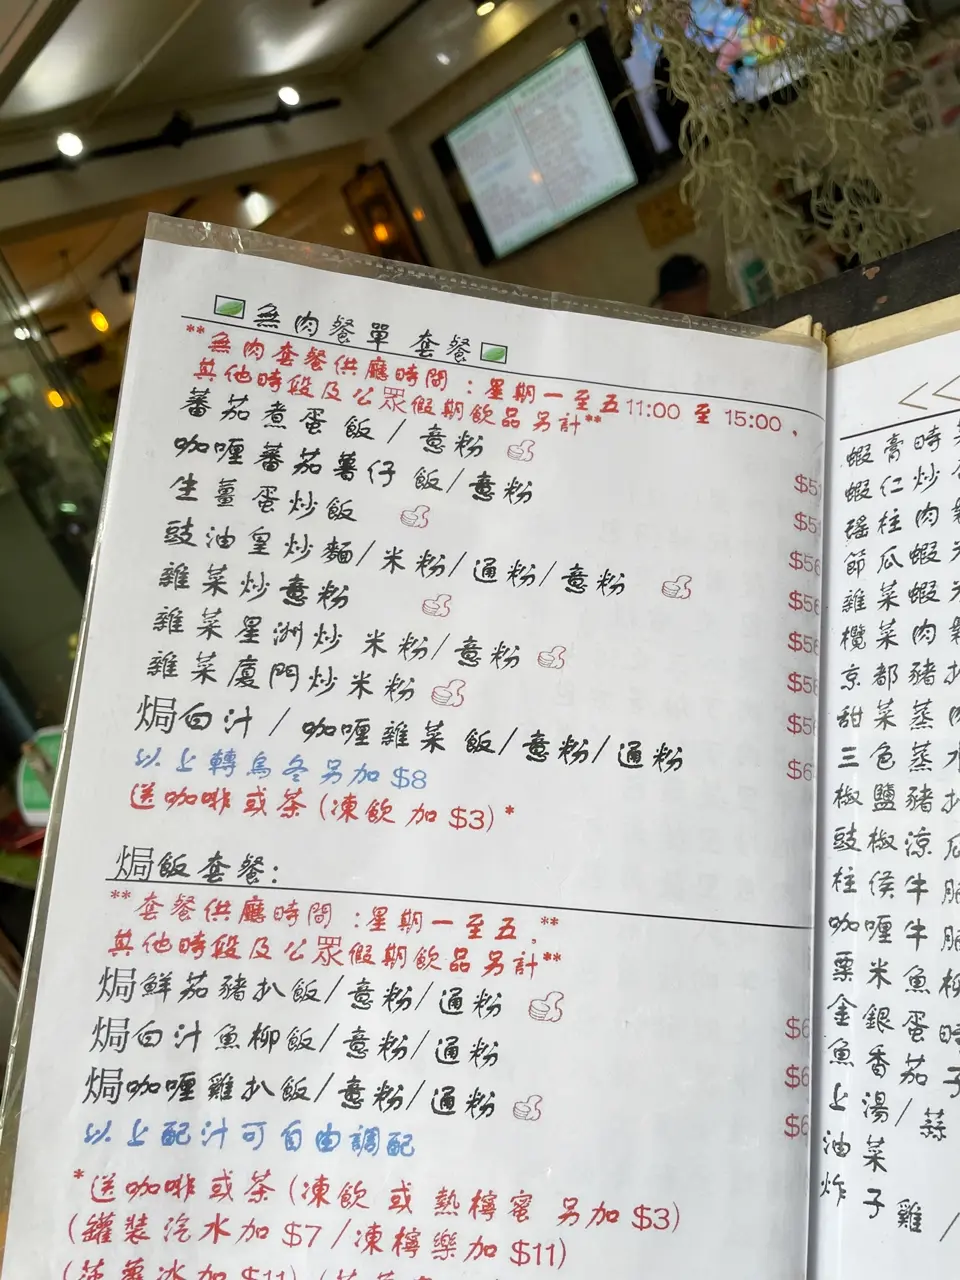 無肉餐單 套餐
**無肉套餐供應時間：星期一至五11:00 至 15:00，
其他時段及公眾假期飲品另計**
蕃茄煮蛋飯 / 意粉
咖喱蕃茄薯仔 飯/意粉
生薑蛋炒飯
豉油皇炒麵/米粉/通粉/意粉
雜菜炒意粉
雜菜星洲炒 米粉/意粉
雜菜廈門炒米粉
焗白汁 / 咖喱雜菜 飯/意粉/通粉
$5
$5
$56
$56
$56
$5
$5
$6
以上轉烏冬另加 $8
送咖啡或茶 (凍飲 加 $3) *
焗飯套餐：
**套餐供應時間：星期一至五，**
其他時段及公眾假期飲品另計**
焗鮮茄豬扒飯/意粉/通粉
焗白汁魚柳飯/意粉/通粉
焗咖喱雞扒飯/意粉/通粉
$6
$6
$6
以上配汁可自由調配
*送咖啡或茶 (凍飲 或 熱檸蜜 另加 $3)
(罐裝汽水加 $7 /凍檸樂加 $11)
(菠蘿冰加 $11)
<<
蝦膏時
蝦仁炒
瑤柱肉
節瓜蝦
雜菜蝦
欖菜肉
京都豬扒
甜菜蒸肉
三色蒸水
椒鹽豬扒
豉椒涼瓜
柱侯牛腩
咖喱牛腩
粟米魚柳
金銀蛋時
魚香茄子
上湯/蒜
油菜
炸子雞 /